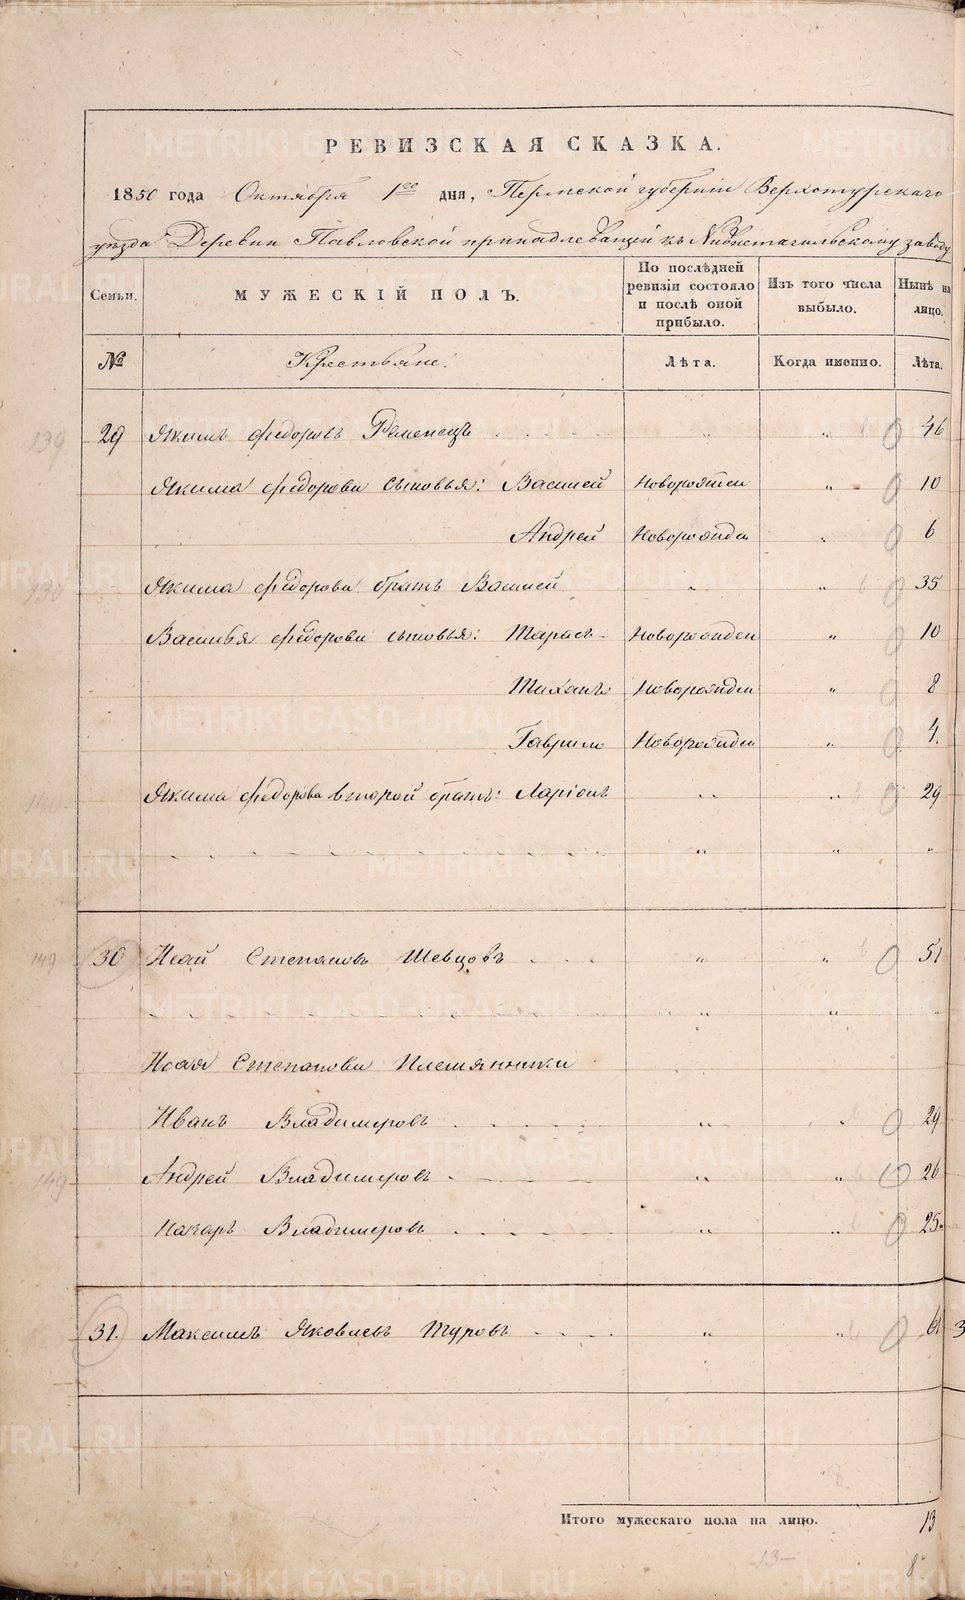 РЕВИЗСКАЯ СКАЗКА.
1850 года Октября 1го дня, Пермской губернiи Верхотурскаго
уѣзда Деревни Павловской принадлежащей къ Нижнетагильскому заводу
Семьи. МУЖЕСКІЙ ПОЛЪ. По послѣдней ревизіи состояло и послѣ оной прибыло. Изъ того числа выбыло. Нынѣ на лицо.
№ Крестьяне. Лѣта. Когда именно. Лѣта.
139 29 Якимъ Федоровъ Ременецъ . . . . " " 46
Якима Федорова сыновья: Василей Новорожден " 10
Андрей Новорожден " 6
130 Якима Федорова братъ Василей " " 35
Василья Федорова сыновья: Тарасъ Новорожден " 10
Тиханъ Новорожден " 8
Гаврило Новорожден " 4.
Якима Федорова второй братъ: Ларіонъ " " 29
" " "
149 30 Исай Степановъ Шевцовъ . . . " " 51
" "
Исая Степанова Племянники
Иванъ Владимеровъ " " 29
149 Андрей Владимеровъ " " 26
Назаръ Владимеровъ " " 25.
31. Максимъ Яковлевъ Туровъ . . . . " " 61 3
Итого мужескаго пола на лицо. 13
13-
8
METRIKI.GASO-URAL.RU